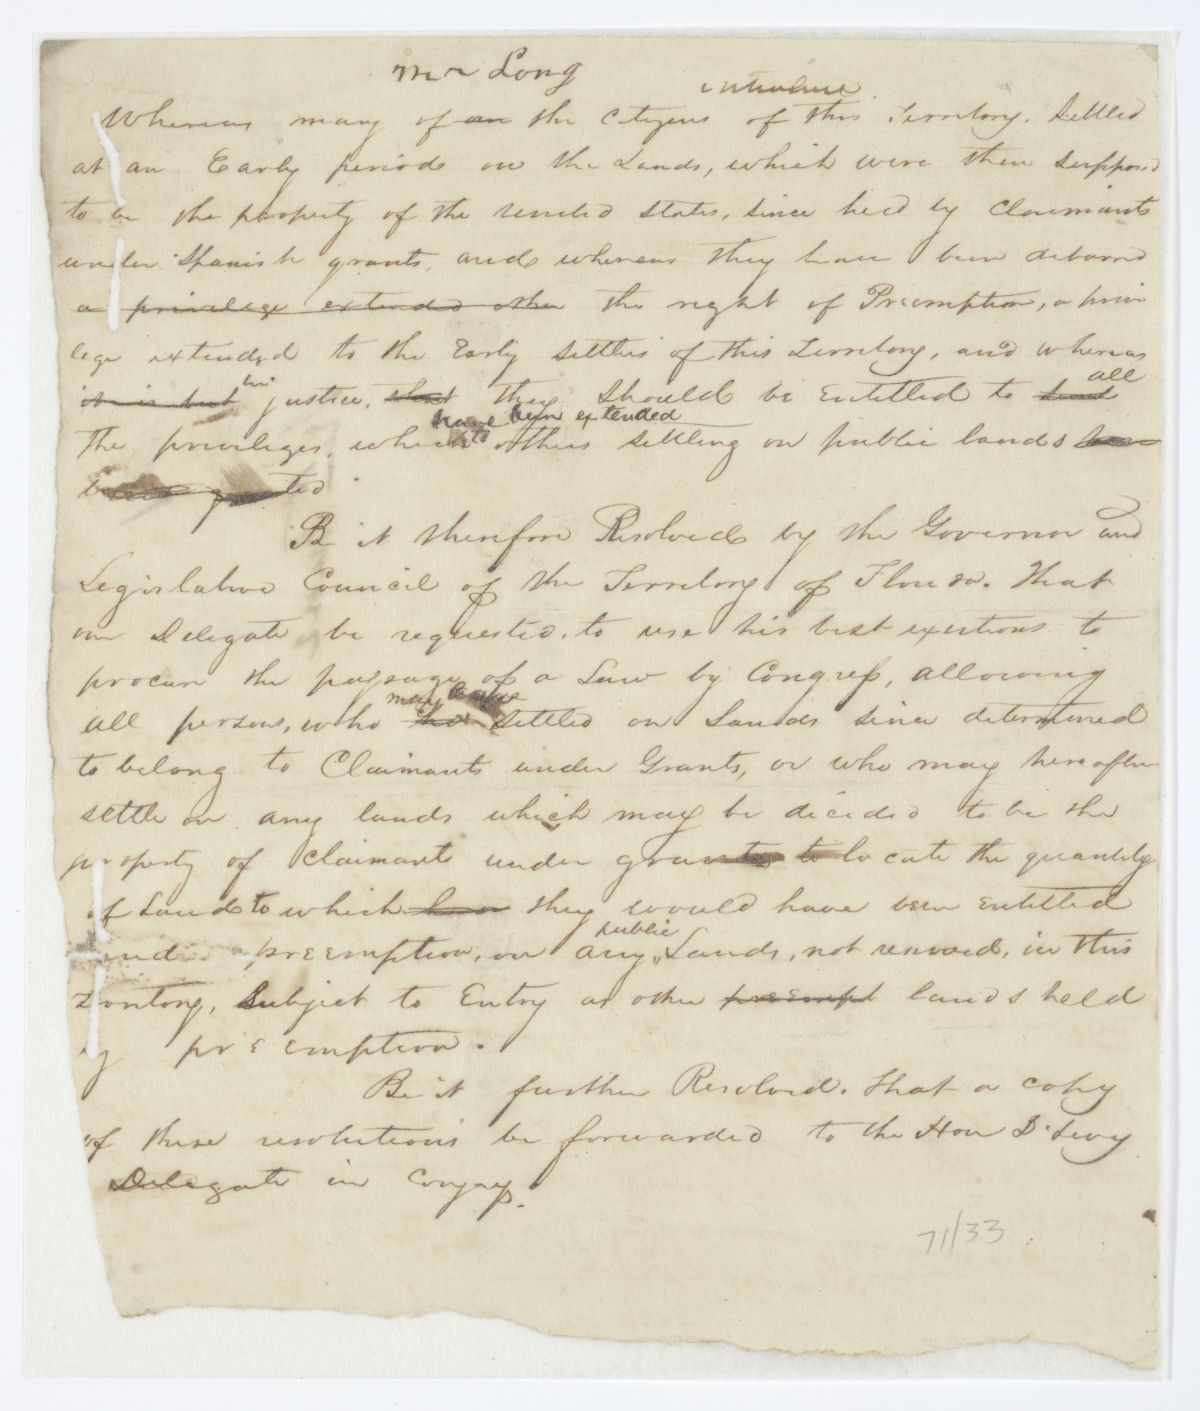 Mr Long
introduce
Whereas many of an the Citizens of this Territory. Settled
at an Early period on the Lands, which were then supposed
to be the property of the united States, since held by Claimants
under Spanish grants, and whereas they have been debarred
a privilege extended other the right of Preemption, a privi
lege extended to the Early Settlers of this Territory, and whereas
it is but in justice, that they should be Entitled to all
have been extended
the privileges, which to others settling on public lands have
been granted
Be it therefore Resolved by the Governor and
Legislative Council of the Territory of Florida. That
our Delegate be requested, to use his best exertions to
procure the passage of a Law by Congress, allowing
may have
all persons, who has settled on Lands since determined
to belong to Claimants under Grants, or who may hereafter
settle on any lands which may be decided to be the
property of Claimants under grants to locate the quantity
of Land to which have they would have been Entitled
public
under preemption, on any Lands, not reserved, in this
Territory, Subject to Entry as other preempt lands held
by preemption.
Be it further Resolved. that a copy
of these resolutions be forwarded to the Hon D. Levy
Delegate in Congress.
71/33